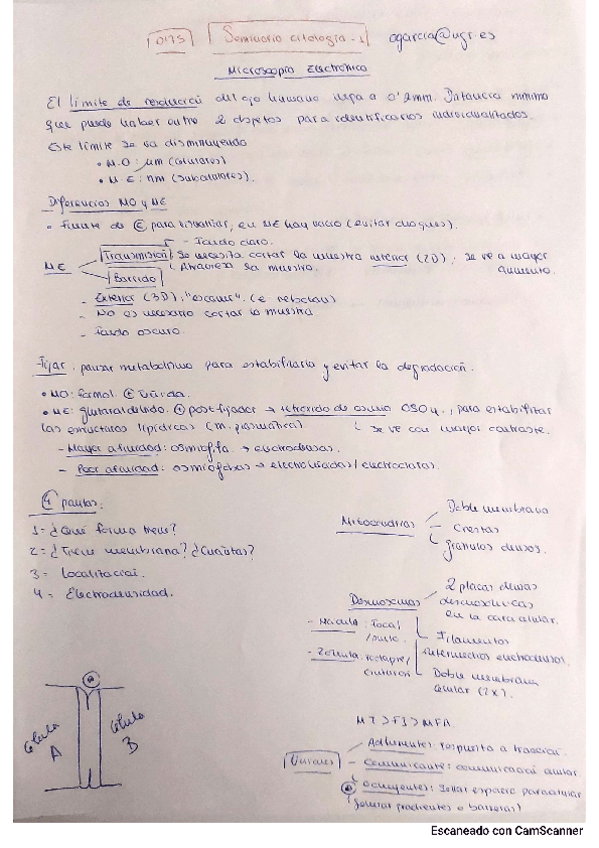 D175 Seminario citología - 1 agarcia@ugr.es
Microscopio Electrónico
El límite de resolución del ojo humano llega a 0'2mm. Distancia mínima
que puede haber entre 2 objetos para identificarlos individualizados.
Este límite se va disminuyendo
• M.O : μm (celulares)
• M.E : nm (subcelulares).
Diferencias MO y ME
• fuente de e⁻ para visualizar, en ME hay vacío (evitar choques).
- Fondo claro.
ME
Transmisión Se necesita cortar la muestra interior (2D), se ve a mayor aumento.
Atraviesa la muestra.
Barrido
- Exterior (3D), "escaner". (e⁻ rebotan)
- No es necesario cortar la muestra
- Fondo oscuro.
-Fijar: parar metabolismo para estabilizarlo y evitar la degradación.
• MO: formol.
• ME: glutaraldehido. ⊕ postfijador → tetróxido de osmio OSO4., para estabilizar
las estructuras lipídicas (m. plasmática) se ve con mayor contraste.
- Mayor afinidad: osmiófila → electrodensas.
- Poca afinidad: osmiófobas → electrolúcidas/electroclaras.
4 pautas:
1 = ¿Qué forma tiene?
2 = ¿Tiene membrana? ¿Cuántas?
3 = Localización.
4 = Electrodensidad.
Mitocondrias
Doble membrana
Crestas
gránulos densos.
Desmosomas
2 placas densas
desmosómicas
en la cara celular.
- Mácula: focal
- Zónula:
cinturón
Filamentos
intermedios electrodensos.
Doble membrana
celular (2x).
MT > FI > MFA
Uniones
Adherentes: respuesta a tracción.
Comunicante: comunicación celular
Ocluyentes: sellar espacio paracelular
(generar gradientes o barreras)
Célula A
Célula B
Escaneado con CamScanner